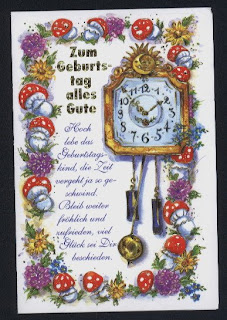 Zum
Geburts-
tag
alles
Gute
Hoch
lebe das
Geburtstags-
kind, die Zeit
vergeht ja so ge-
schwind.
Bleib weiter
fröhlich und
zufrieden, viel
Glück sei Dir
beschieden.
12
1
2
3
4
5
6
7
8
9
10
11